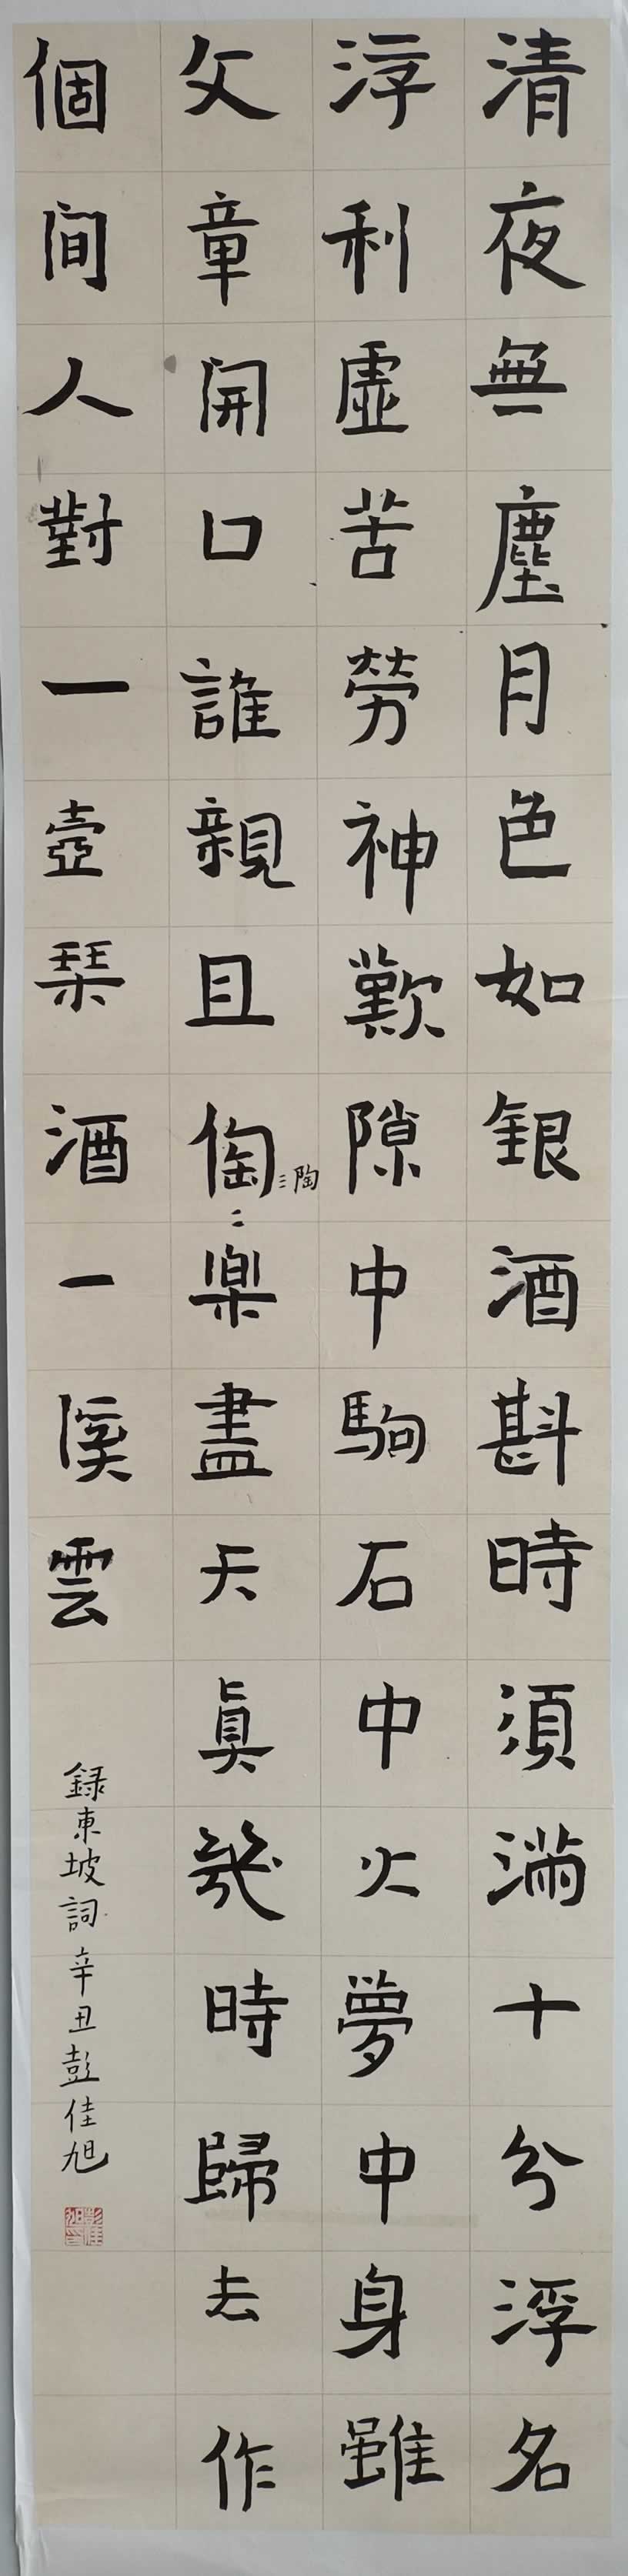 清夜無塵月色如銀酒斟時須滿十分浮名
浮利虛苦勞神歎隙中駒石中火夢中身雖
文章開口誰親且陶〻樂盡天眞幾時歸去作
〻陶
個間人對一壺琴酒一溪雲
録東坡詞辛丑彭佳旭
彭佳旭印